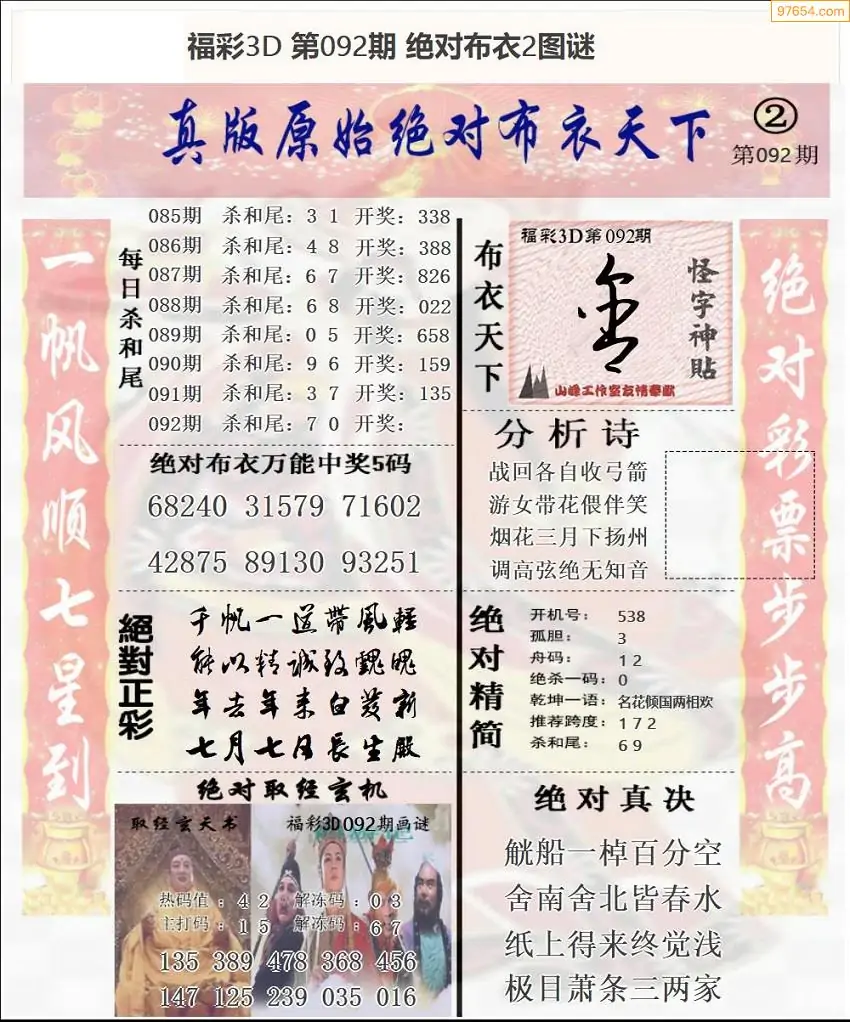 97654.com
福彩3D 第092期 绝对布衣2图谜
真版原始绝对布衣天下
②
第092期
一帆风顺七星到
每日杀和尾
085期 杀和尾：3 1 开奖：338
086期 杀和尾：4 8 开奖：388
087期 杀和尾：6 7 开奖：826
088期 杀和尾：6 8 开奖：022
089期 杀和尾：0 5 开奖：658
090期 杀和尾：9 6 开奖：159
091期 杀和尾：3 7 开奖：135
092期 杀和尾：7 0 开奖：
绝对布衣万能中奖5码
68240 31579 71602
42875 89130 93251
絕對正彩
千帆一道帶風輕
能以精诚致魂魄
年去年来白发新
七月七日長生殿
绝对取经玄机
取经玄天书
福彩3D092期画谜
热码值：4 2 解冻码：0 3
主打码：1 5 解冻码：6 7
135 389 478 368 456
147 125 239 035 016
布衣天下
福彩3D第092期
怪字神贴
山峰工作室友情奉献
分析诗
战回各自收弓箭
游女带花偎伴笑
烟花三月下扬州
调高弦绝无知音
绝对精简
开机号：538
孤胆：3
舟码：1 2
绝杀一码：0
乾坤一语：名花倾国两相欢
推荐跨度：1 7 2
杀和尾：6 9
绝对真决
觥船一棹百分空
舍南舍北皆春水
纸上得来终觉浅
极目萧条三两家
绝对彩票步步高